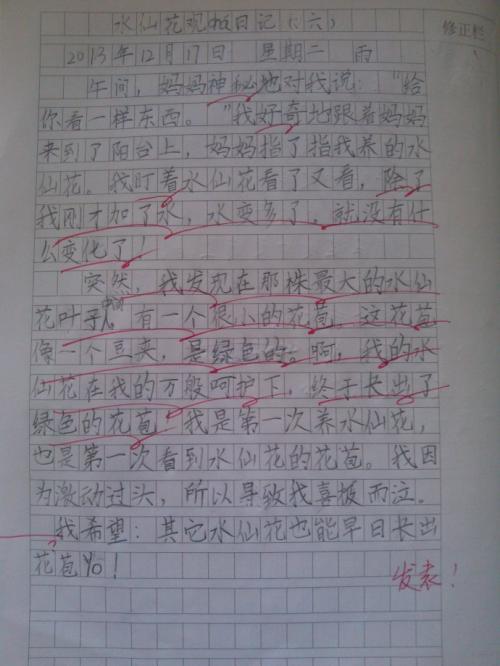 水仙花观察日记（六）
修正栏
2013年12月17日 星期二 雨
午间，妈妈神秘地对我说：“给
你看一样东西。”我好奇地跟着妈妈
来到了阳台上，妈妈指了指我养的水
仙花。我盯着水仙花看了又看，除了
我刚才加了水，水变多了，就没有什
么变化了！
突然，我发现在那株最大的水仙
花叶子中间，有一个很小的花苞。这花苞
像一个豆荚，是绿色的。啊，我的水
仙花在我的万般呵护下，终于长出了
绿色的花苞！我是第一次养水仙花，
也是第一次看到水仙花的花苞。我因
为激动过头，所以导致我喜极而泣。
我希望：其它水仙花也能早日长出
花苞Yo！
发表！